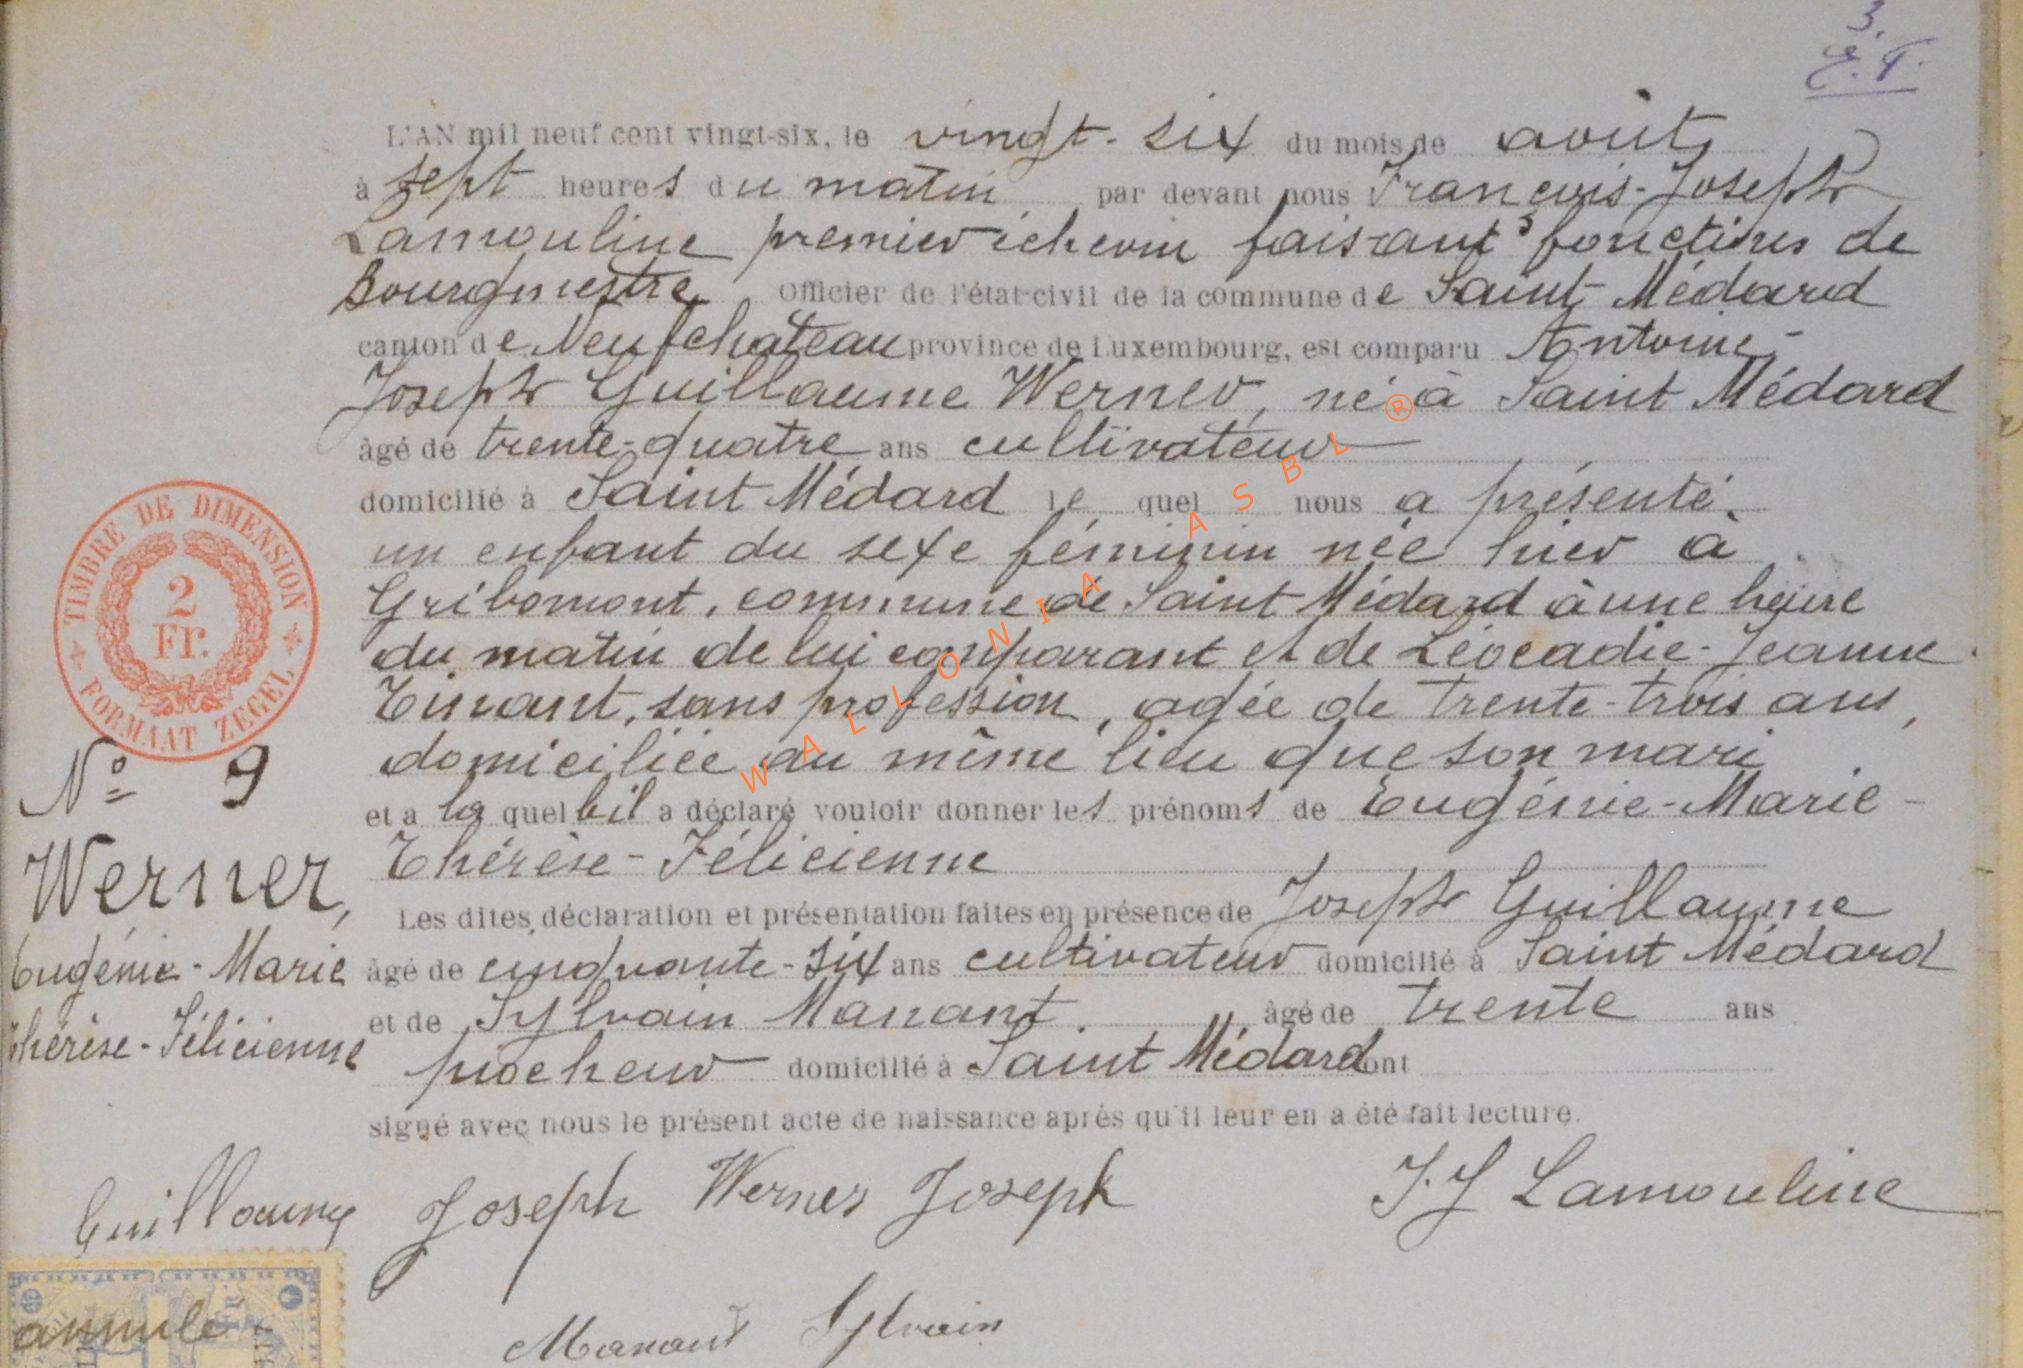 3.
E. T.
L'AN mil neuf cent vingt-six, le vingt-six du mois de août
à sept heures du matin par devant nous François-Joseph
Lamouline premier échevin faisant fonctions de
Bourgmestre Officier de l'état-civil de la commune de Saint-Médard
canton de Neufchateau province de Luxembourg, est comparu Antoine-
Joseph Guillaume Werner, né à Saint Médard
âgé de trente-quatre ans cultivateur
domicilié à Saint Médard le quel nous a présenté
un enfant du sexe féminin née hier à
Gribomont, commune de Saint Médard à une heure
du matin de lui comparant et de Léocadie-Jeanne
Tinant, sans profession, agée de trente-trois ans,
domiciliée au même lieu que son mari
et a la quel lil a déclaré vouloir donner les prénoms de Eugénie-Marie-
Thérèse-Félicienne
Les dites déclaration et présentation faites en présence de Joseph Guillaume
âgé de cinquante-six ans cultivateur domicilié à Saint Médard
et de Sylvain Manant. âgé de trente ans
piocheur domicilié à Saint Médard ont
signé avec nous le présent acte de naissance après qu'il leur en a été fait lecture.
TIMBRE DE DIMENSION
2
Fr.
FORMAAT ZEGEL
N° 9
Werner,
Eugénie-Marie
Thérèse-Félicienne
Guillaume Joseph Werner Joseph J. J Lamouline
Manant Sylvain
annulé
WALLONIA ASBL ®